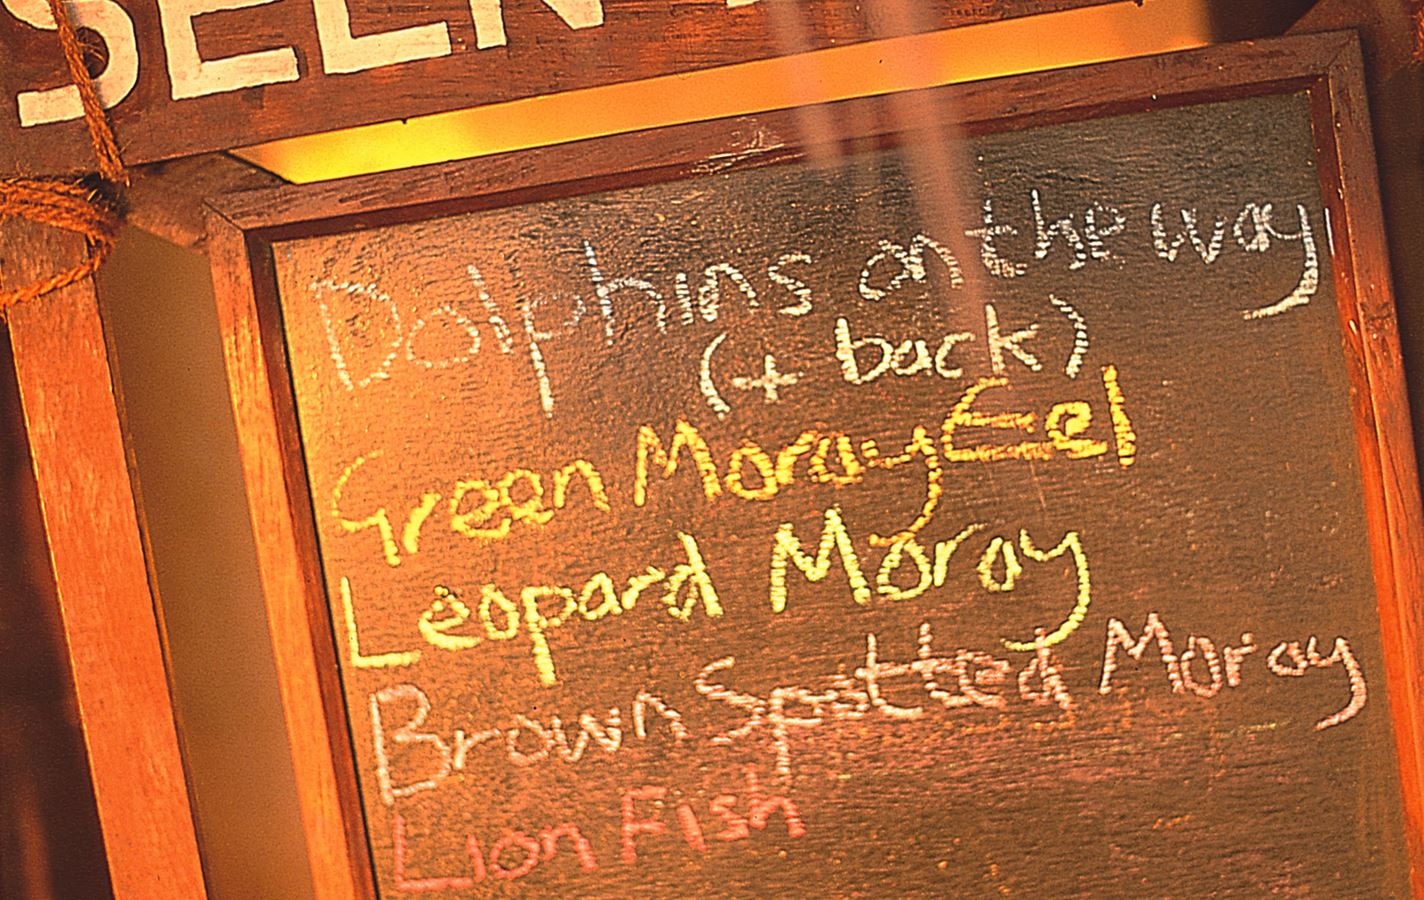 SEEN
Dolphins on the way
(+ back)
Green Moray Eel
Leopard Moray
Brown Spotted Moray
Lion Fish